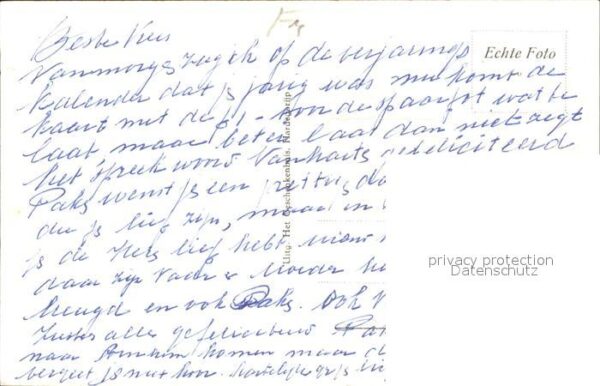 Beste Kees
Vanmorge zag ik op de verjaarings
Echte Foto
kalender dat je jarig was nu komt de
kaart met de f1- voor de spaarpot wat te
laat maar beter laat dan niet zegt
het spreek woord Van harte gefeliciteerd
Paks wenst je een prettig
die je lief zijn, maar
je de Heer lief hebt
daar zijn Vader & Moeder
heugd en ook Paks. Ook
Zusters alle gefeliciteerd
naar Arnhem komen maar
vergeet je niet hoor. Hartelijke gr
Uitg. Het Geschenkenhuis, Harderwijk
privacy protection
Datenschutz